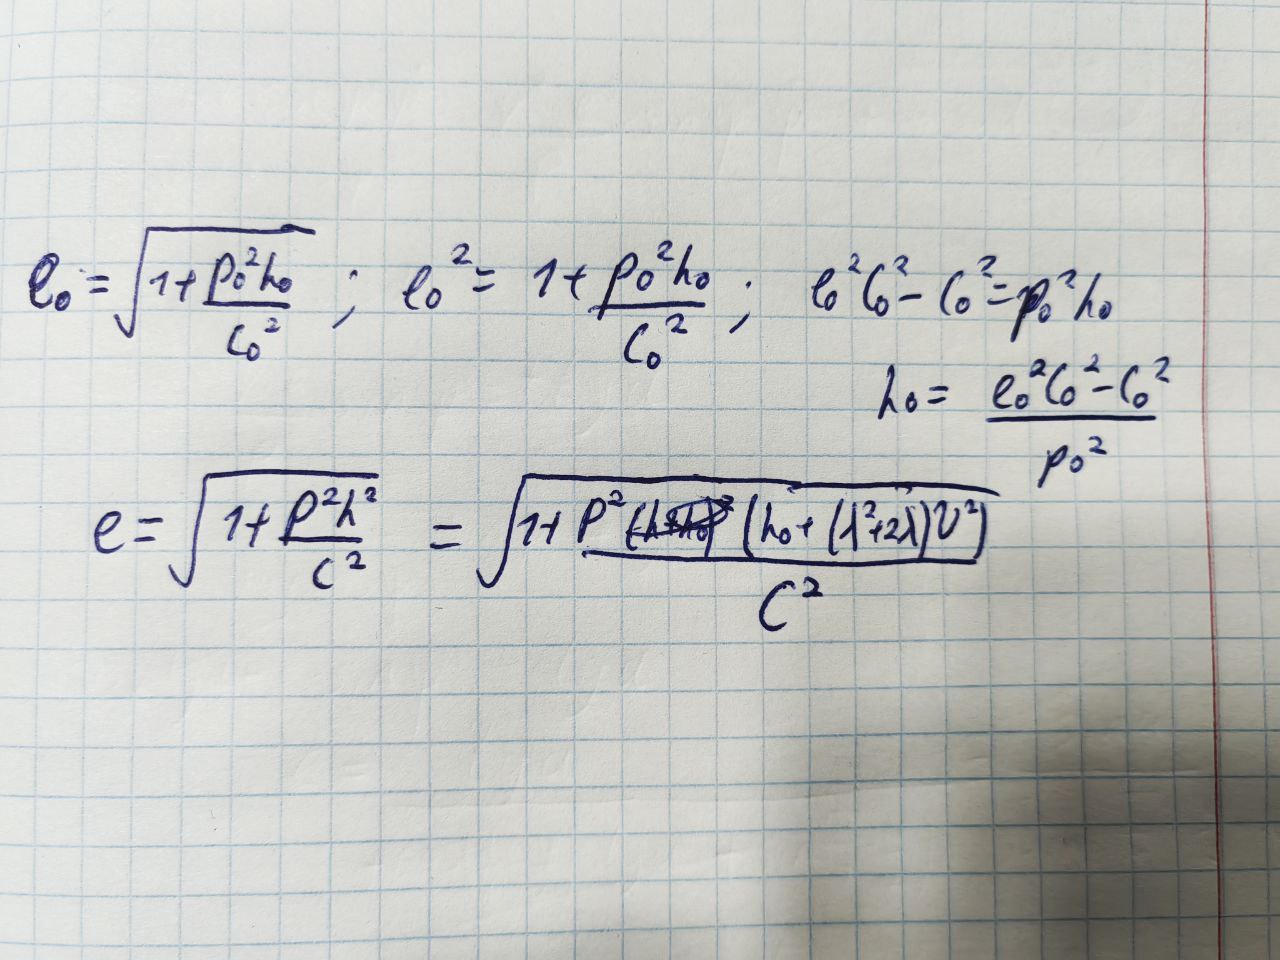 e₀ = √(1 + p₀²h₀/c₀²) ; e₀² = 1 + p₀²h₀/c₀² ; e₀²c₀² - c₀² = p₀²h₀
h₀ = (e₀²c₀² - c₀²)/p₀²
e = √(1 + p²h²/c²) = √(1 + p²(h₀ + (λ²+2λ)v²)/c²)